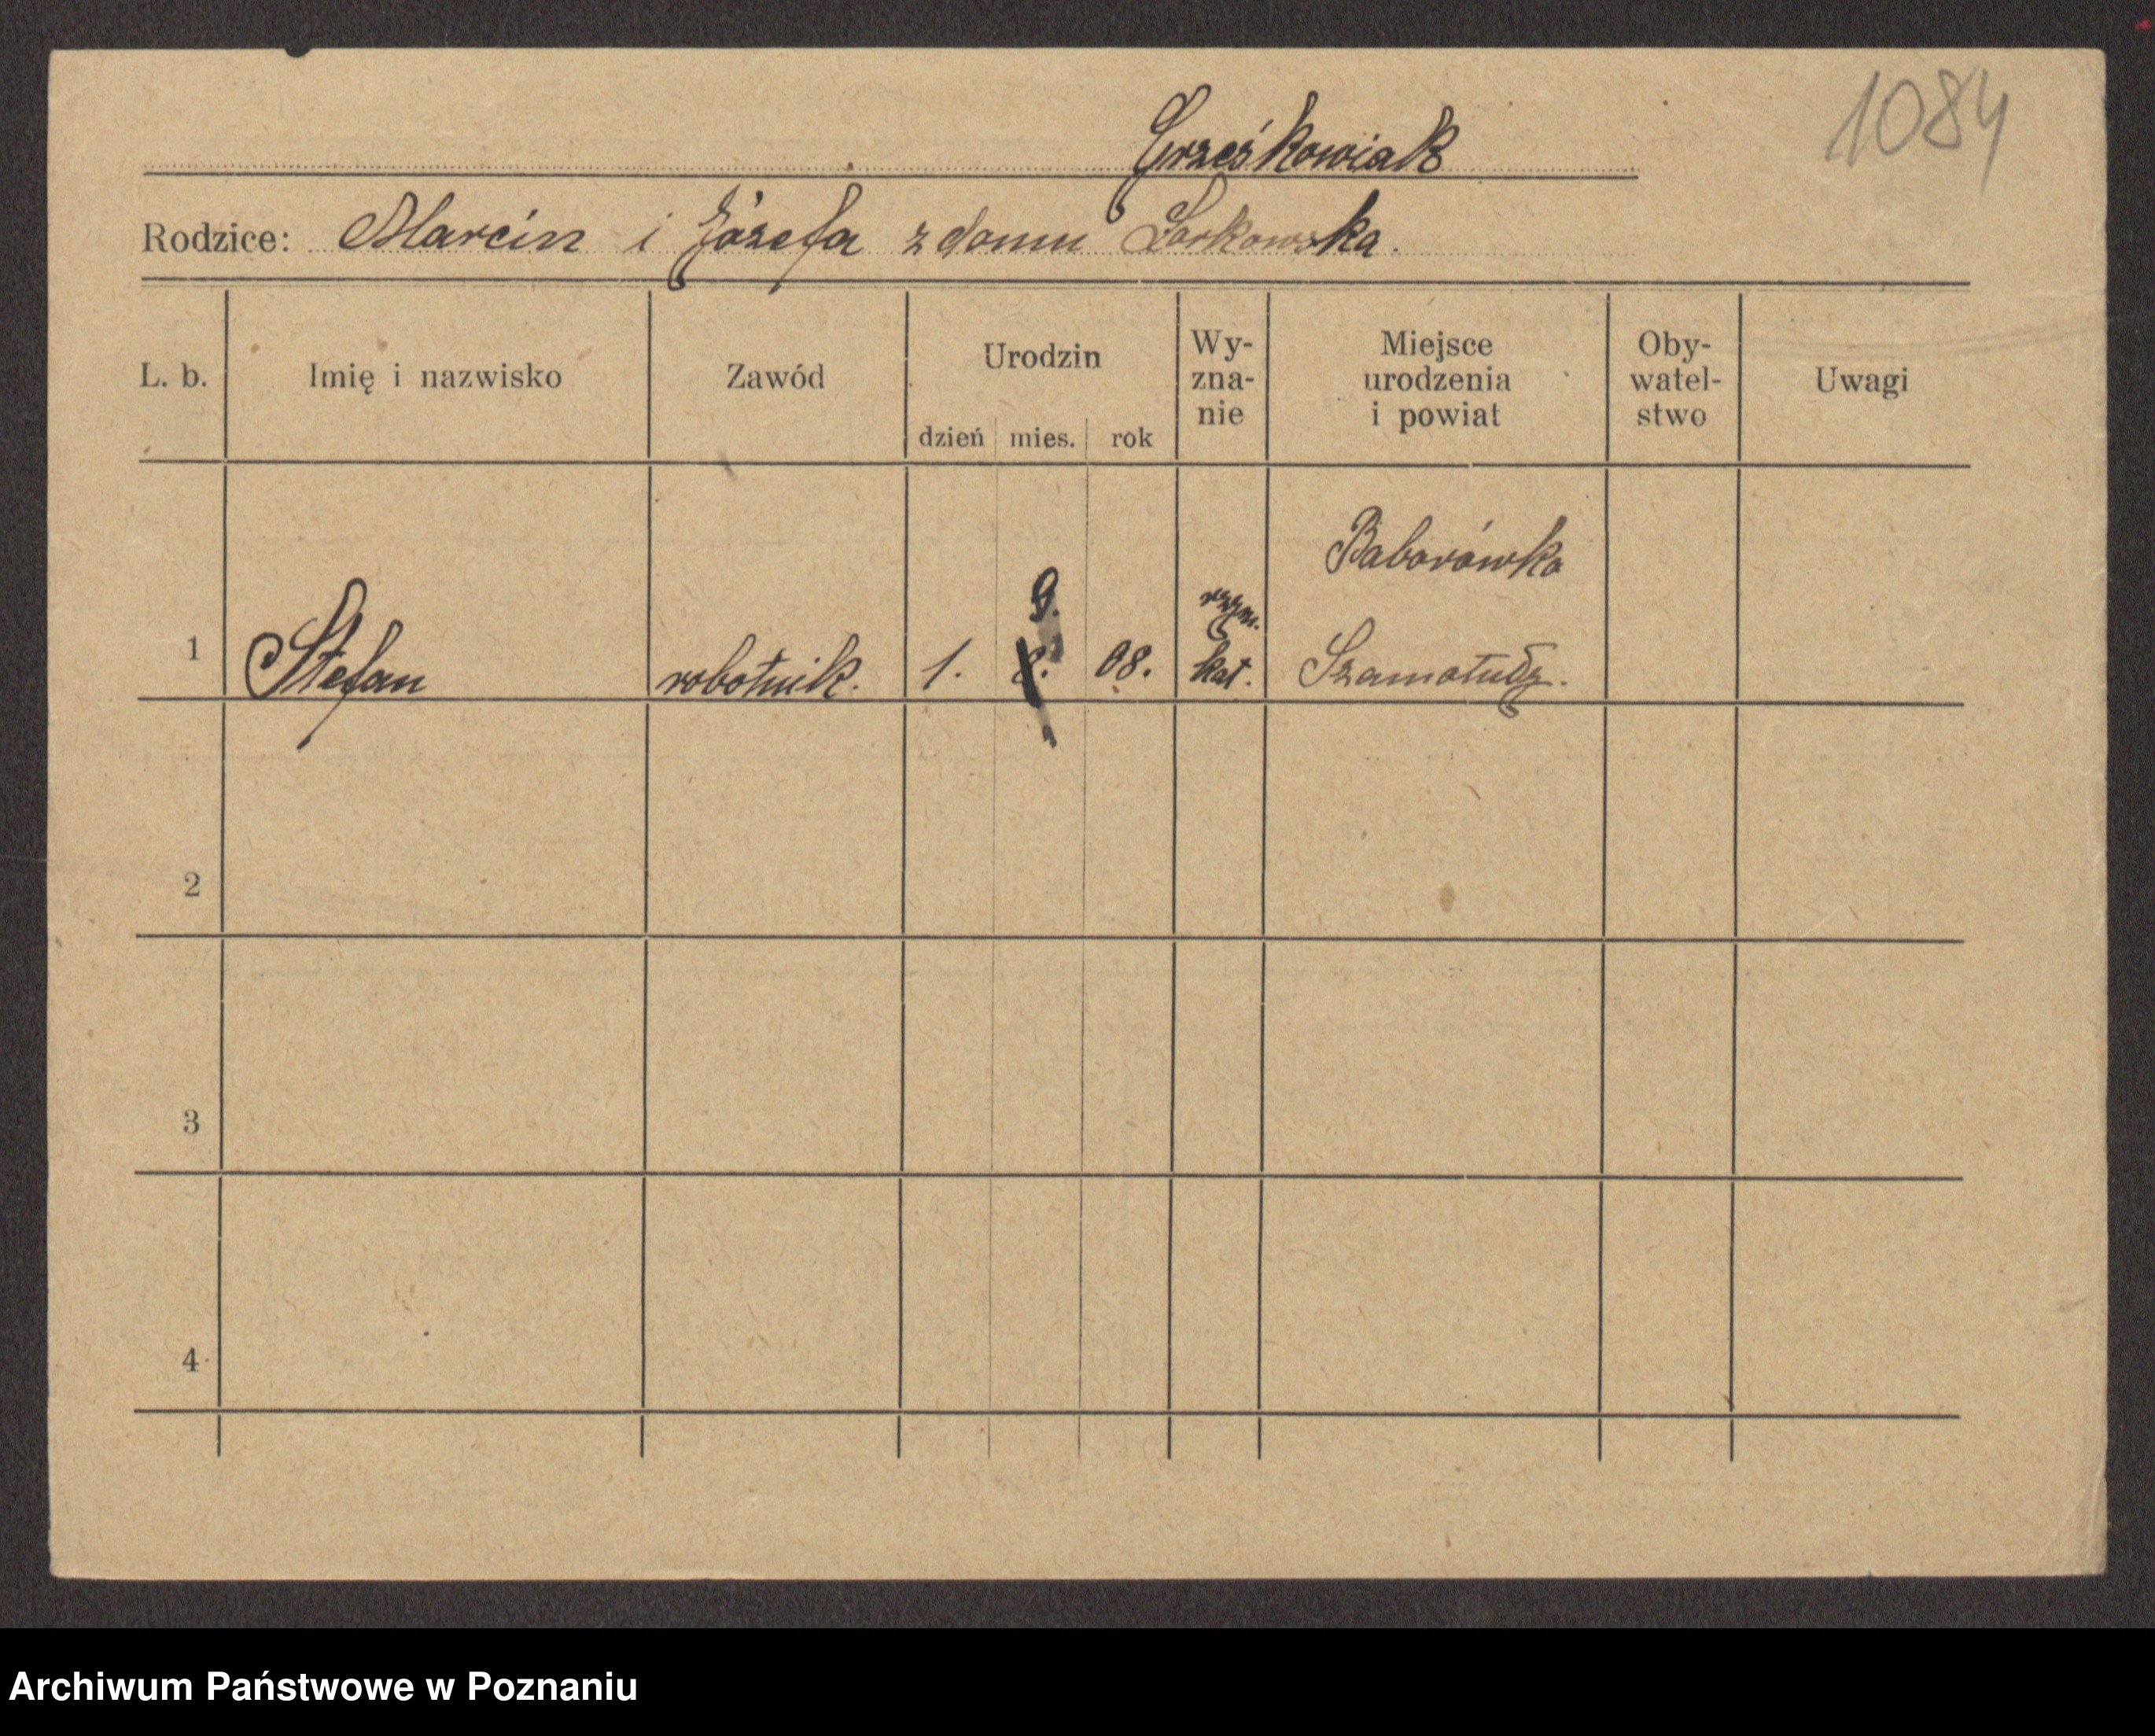 1084
Grześkowiak
Rodzice: Marcin i Józefa z domu Lorkowska.
L. b. Imię i nazwisko Zawód Urodzin dzień mies. rok Wy-zna-nie Miejsce urodzenia i powiat Oby-watel-stwo Uwagi
Baborówko
9.
rzym.
1 Stefan robotnik. 1. 8. 08. kat. Szamotuły.
2
3
4
Archiwum Państwowe w Poznaniu